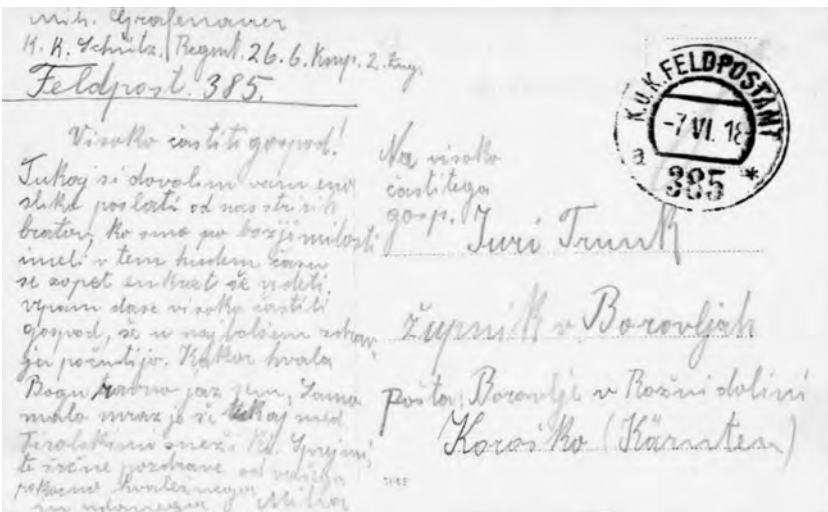 Mih. Grafenauer
K. K. Schütz. Regmt. 26. 6. Kmp. 2. Zug.
Feldpost. 385.
Visoko častiti gospod!
Tukaj si dovolim vam eno
sliko poslati od nas štirih
bratov, ko smo po božji milosti
imeli v tem hudem času
se zopet enkrat še videti.
Upam da se visoko častiti
gospod, še v najbolšem zdrav-
ju počutijo. Kakor hvala
Bogu ravno jaz sem, Samo
malo mraz je še tukaj med
Tirolskimi
te srčne pozdrave od vašega
hvaležnega
in udanega Miha
Na visoko
častitega
gosp. Juri Trunk
župnik v Borovljah
pošta, Borovlje v Rožni dolini
Koroško (Kärnten)
K.u.K. FELDPOSTAMT
-7 VI. 18
a 385 *